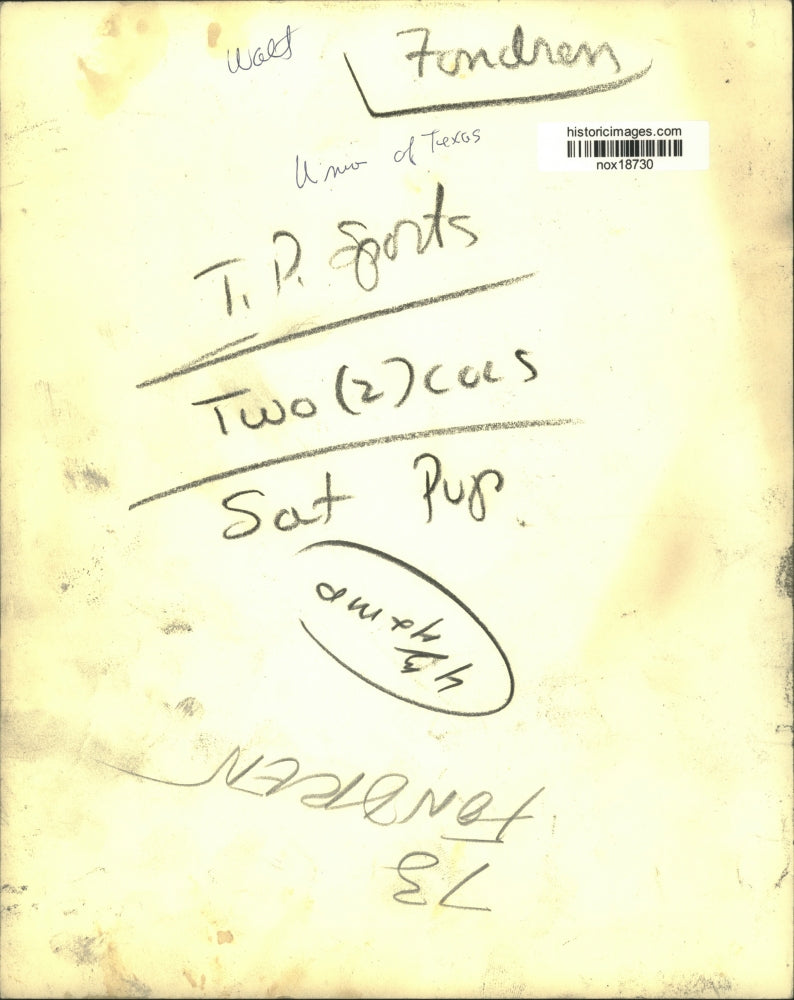 Walt Fondren
historicimages.com
nox18730
Univ of Texas
T.P. Sports
Two (2) cols
Sat Pup
FONDREN
73